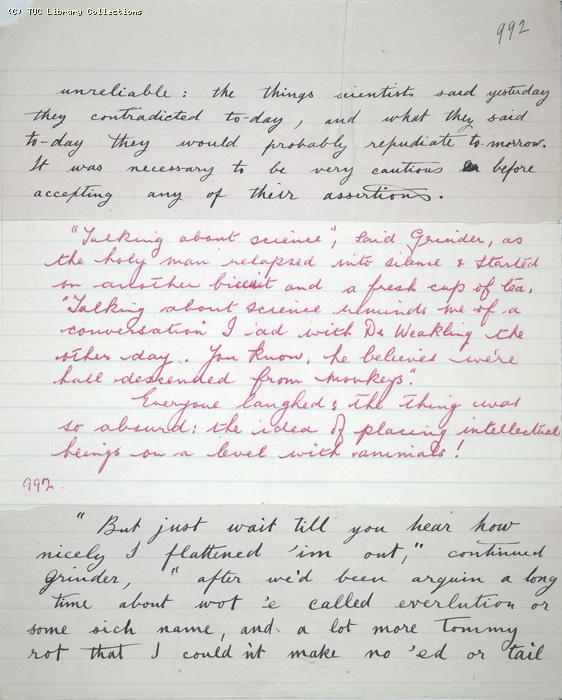 (C) TUC Library Collections
992
unreliable: the things scientists said yesterday
they contradicted to-day, and what they said
to-day they would probably repudiate to-morrow.
It was necessary to be very cautious before
accepting any of their assertions.
"Talking about science", said Grinder, as
the holy man relapsed into silence & started
on another biscuit and a fresh cup of tea.
"Talking about science reminds me of a
conversation I 'ad with Dr Weakling the
other day. You know, he believes we're
hall descended from monkeys".
Everyone laughed; the thing was
so absurd: the idea of placing intellectual
beings on a level with animals!
992.
"But just wait till you hear how
nicely I flattened 'im out," continued
Grinder, "after we'd been arguin a long
time about wot 'e called everlution or
some sich name, and a lot more Tommy
rot that I could n't make no 'ed or tail